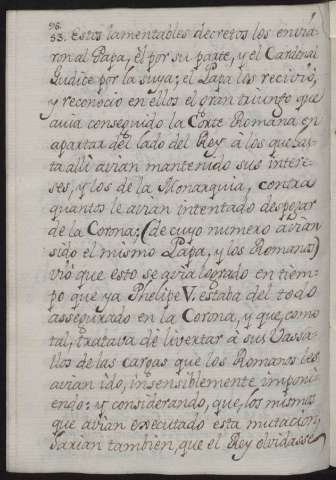 98.
53. Estos lamentables decretos los envia-
ron al Papa, èl por su parte, y el Cardenal
Judice por la suya; el Papa los recivio,
y reconocio en ellos el gran triunfo que
avia conseguido la Corte Romana en
apartar del lado del Rey à los que has-
ta alli avian mantenido sus intere-
ses, y los de la Monarquia, contra
quantos le avian intentado despojar
de la Corona; (de cuyo numero avian
sido el mismo Papa, y los Romanos)
viò que esto se avia logrado en tiem-
po que ya Phelipe V. estaba del todo
assegurado en la Corona, y que, como
tal, trataba de livertar à sus Vassa-
llos de las cargas que los Romanos les
avian ido, insensiblemente imponi-
endo: y considerando, que, los mismos
que avian executado esta mutacion,
darian tambien, que el Rey olvidasse